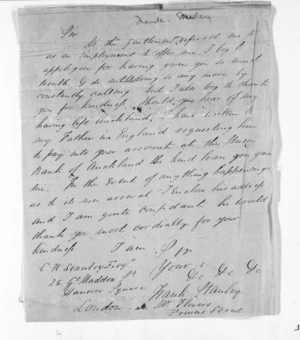 Sir
As the gentleman referred me to
as an employment to offer me, I beg to
apologize for having given you so much
trouble & do not like to any more by
constantly calling but I also beg to thank
you for kindness should you hear of my
having left Auckland, I have written to
my Father in England requesting him
to pay into your account at the Union
Bank of Auckland the kind loan you gave
me. In the event of anything happening
as to its non arrival I enclose his address
and I am quite confident he would
thank you most cordially for your
kindness I am Sir
C N Stanley Esqr Your's
28 Gt Maddox St &c &c &c
Hanover Square Frank Stanley
London at Mr
Princes Street